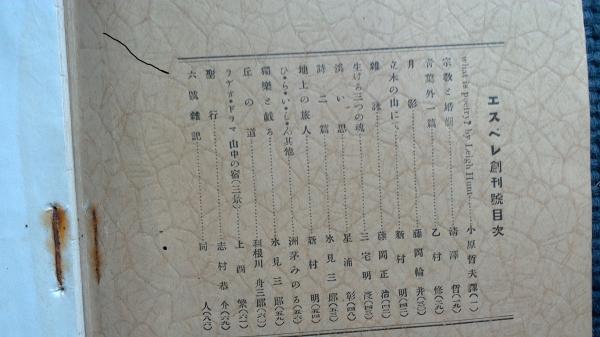 エスペレ創刊號目次
What is poetry? by Leigh Hunt……小原哲夫譯(一)
宗教と婚姻……清澤哲(一九)
青葉外一篇……乙村修(二九)
月影……藤岡輪井(三〇)
立木の山にて……新村明(四二)
雜詠……藤岡正浩(四三)
生ける三つの魂……三宅明度(四三)
淡い思……星浦彰(四八)
詩二篇……氷見三郎(五三)
地上の旅人……新村明(五四)
ひ・ら・い・し・ん其他……洲茅みのる(五六)
獨樂と戯る……氷見三郎(五九)
丘の道……利根川舟三郎(六〇)
ラヂオ・ドラマ 山中の宿(二景)……上西繁(六一)
聖行……志村恭介(六九)
六號雜記……同人(八〇)